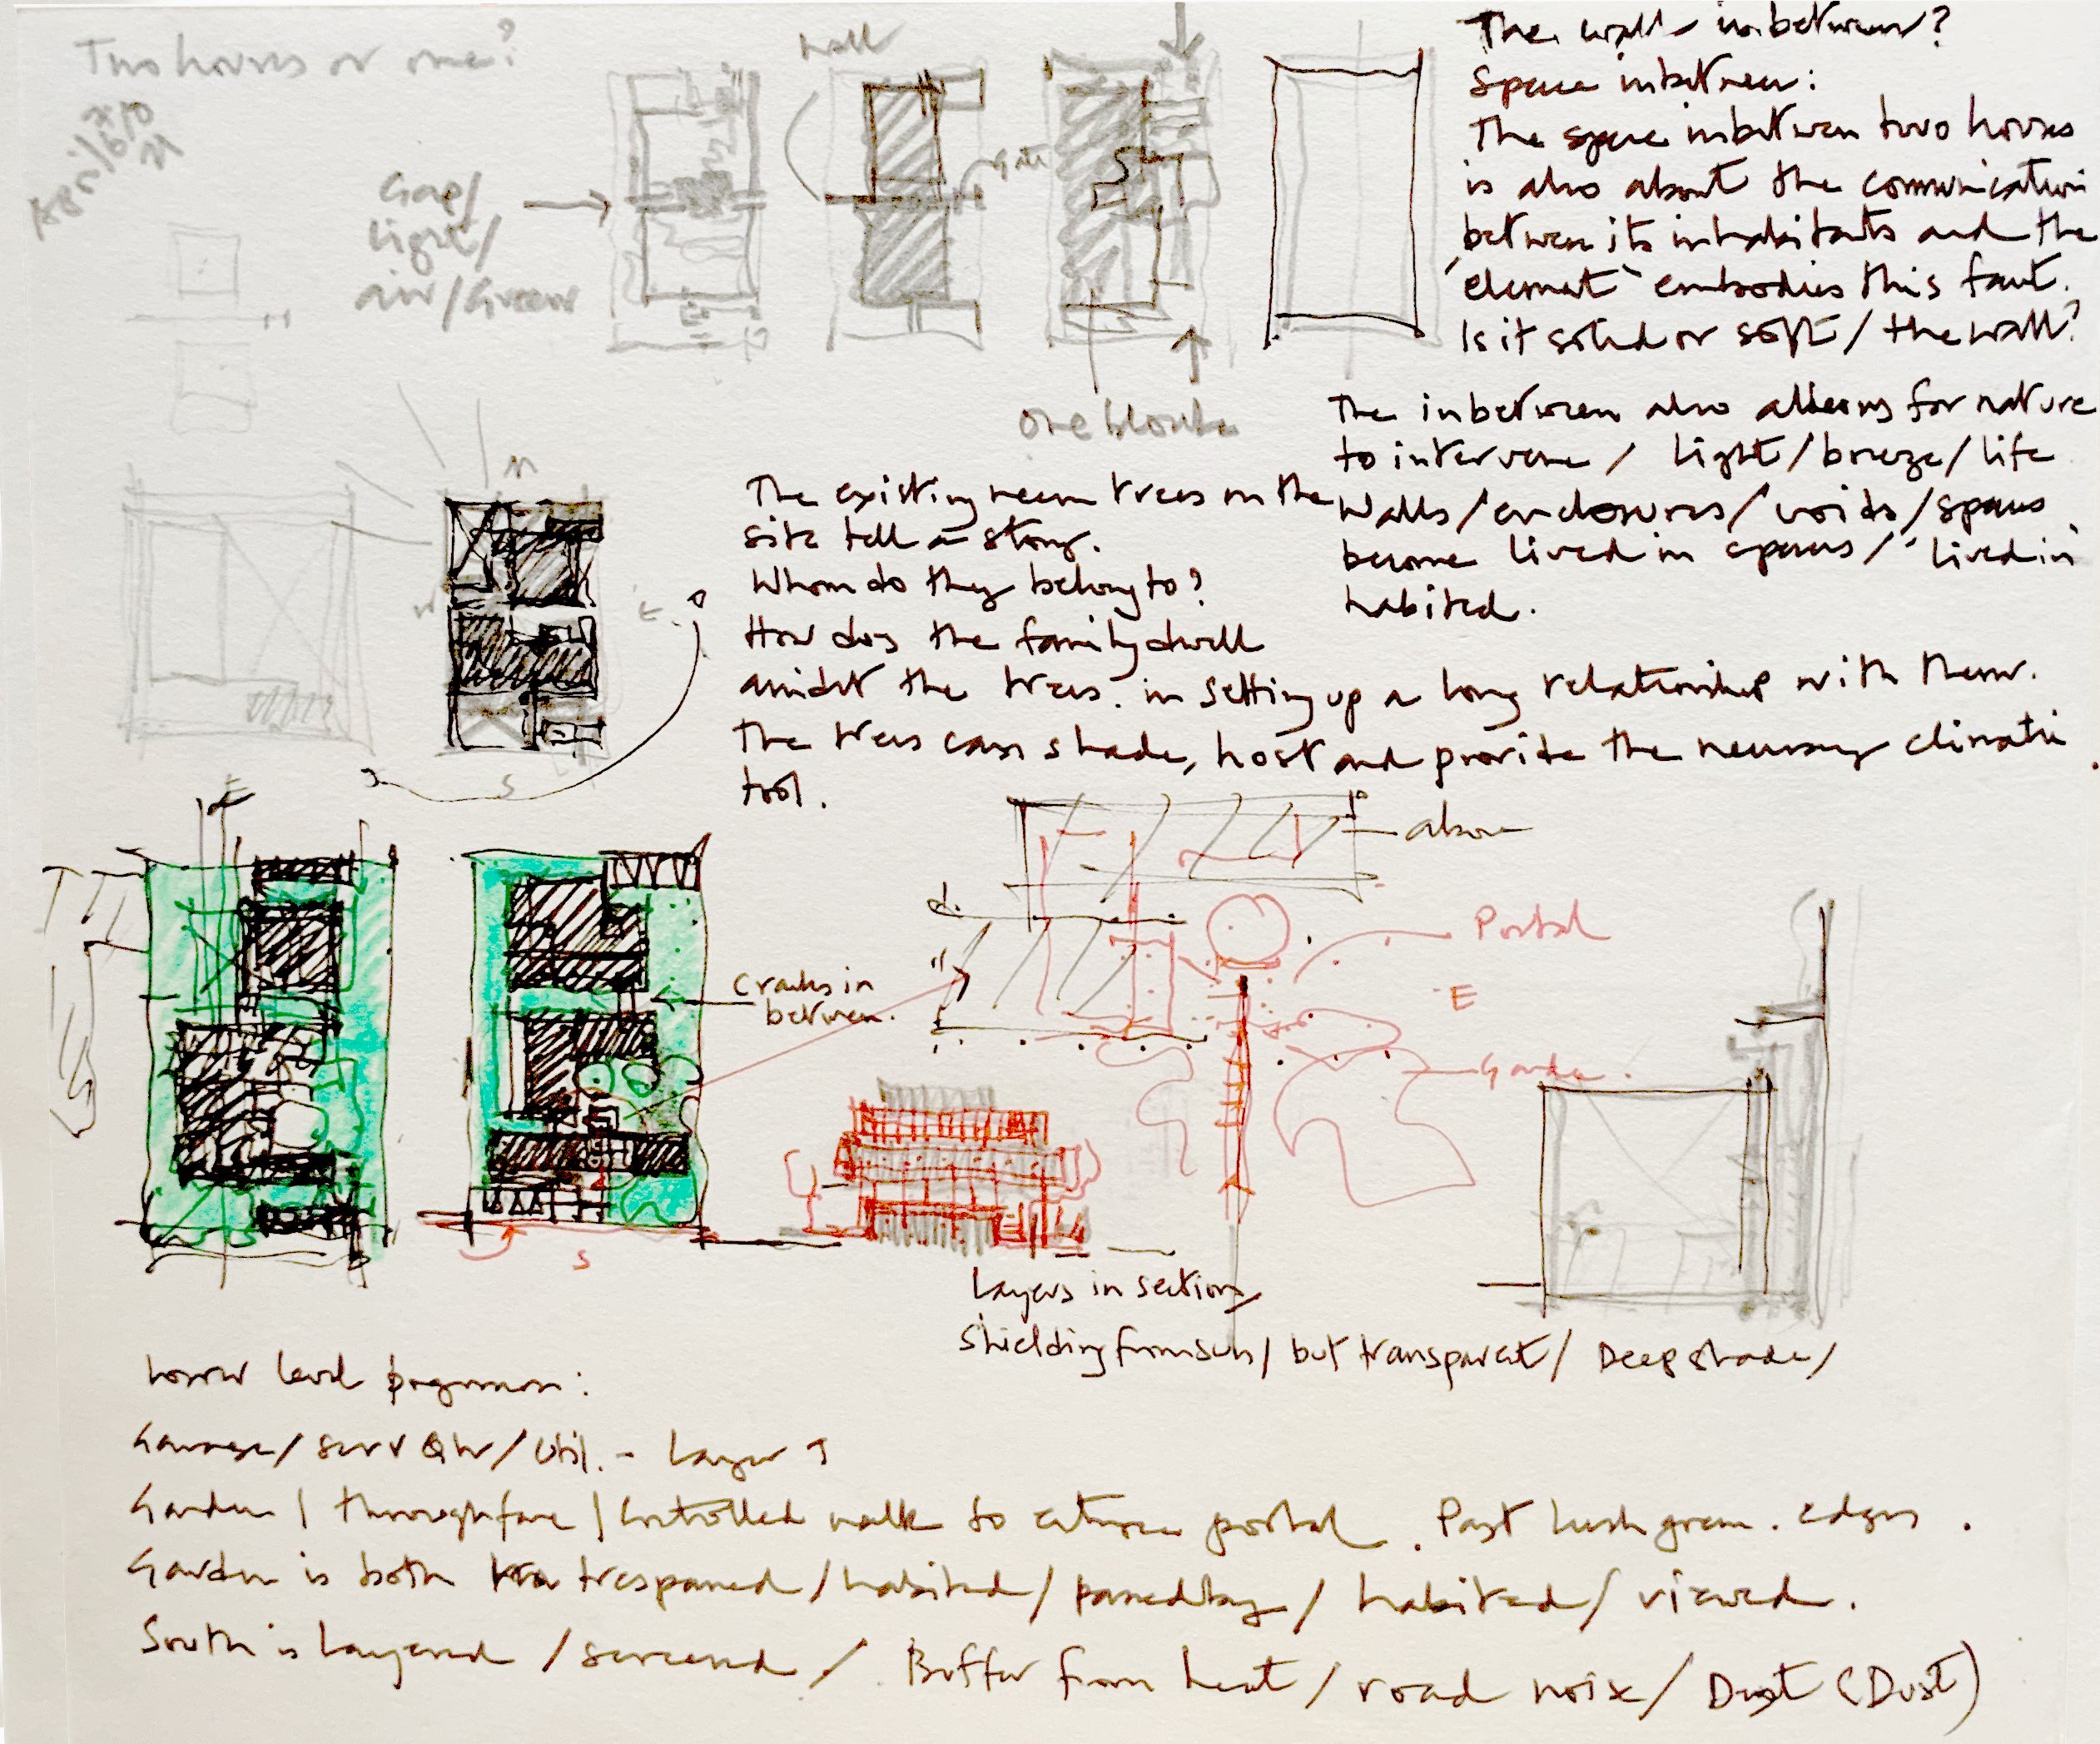 Two houses or one?
April
Gap/
light/
air/Green
wall
Gate
one block
The wall inbetween?
Space inbetween:
The space inbetween two houses
is also about the communication
between its inhabitants and the
'element' embodies this fact.
Is it solid or soft / the wall?
The inbetween also allows for nature
to intervene / light / breeze / life
Walls / enclosures / voids / spaces
become lived in spaces / 'lived in'
habited.
N
W
E
S
The existing neem trees on the
site tell a story.
Whom do they belong to?
How does the family dwell
amidst the trees. in setting up a long relationship with them.
The trees can shade, host and provide the necessary climatic
tool.
above
Portal
E
Garden
Cracks in
between.
S
Layers in section
Shielding from sun / but transparent / Deep shade /
Lower level program:
Garage / Serv Qtr / Util. - Layer 1
Garden / thoroughfare / Controlled walk to entrance portal. Past lush green. edges.
Garden is both trespassed / habited / passed by / habited / viewed.
South is layered / screened / Buffer from heat / road noise / Dust (Dust)